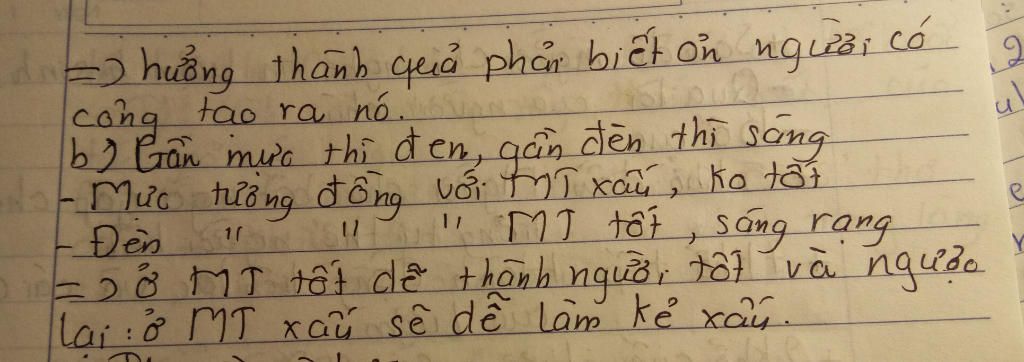 => hưởng thành quả phải biết ơn người có
công tạo ra nó.
b) Gần mực thì đen, gần đèn thì sáng
- Mực tương đồng với MT xấu, ko tốt
- Đèn " " " MT tốt, sáng rạng
=> ở MT tốt dễ thành người tốt và ngược
lại: ở MT xấu sẽ dễ làm kẻ xấu.